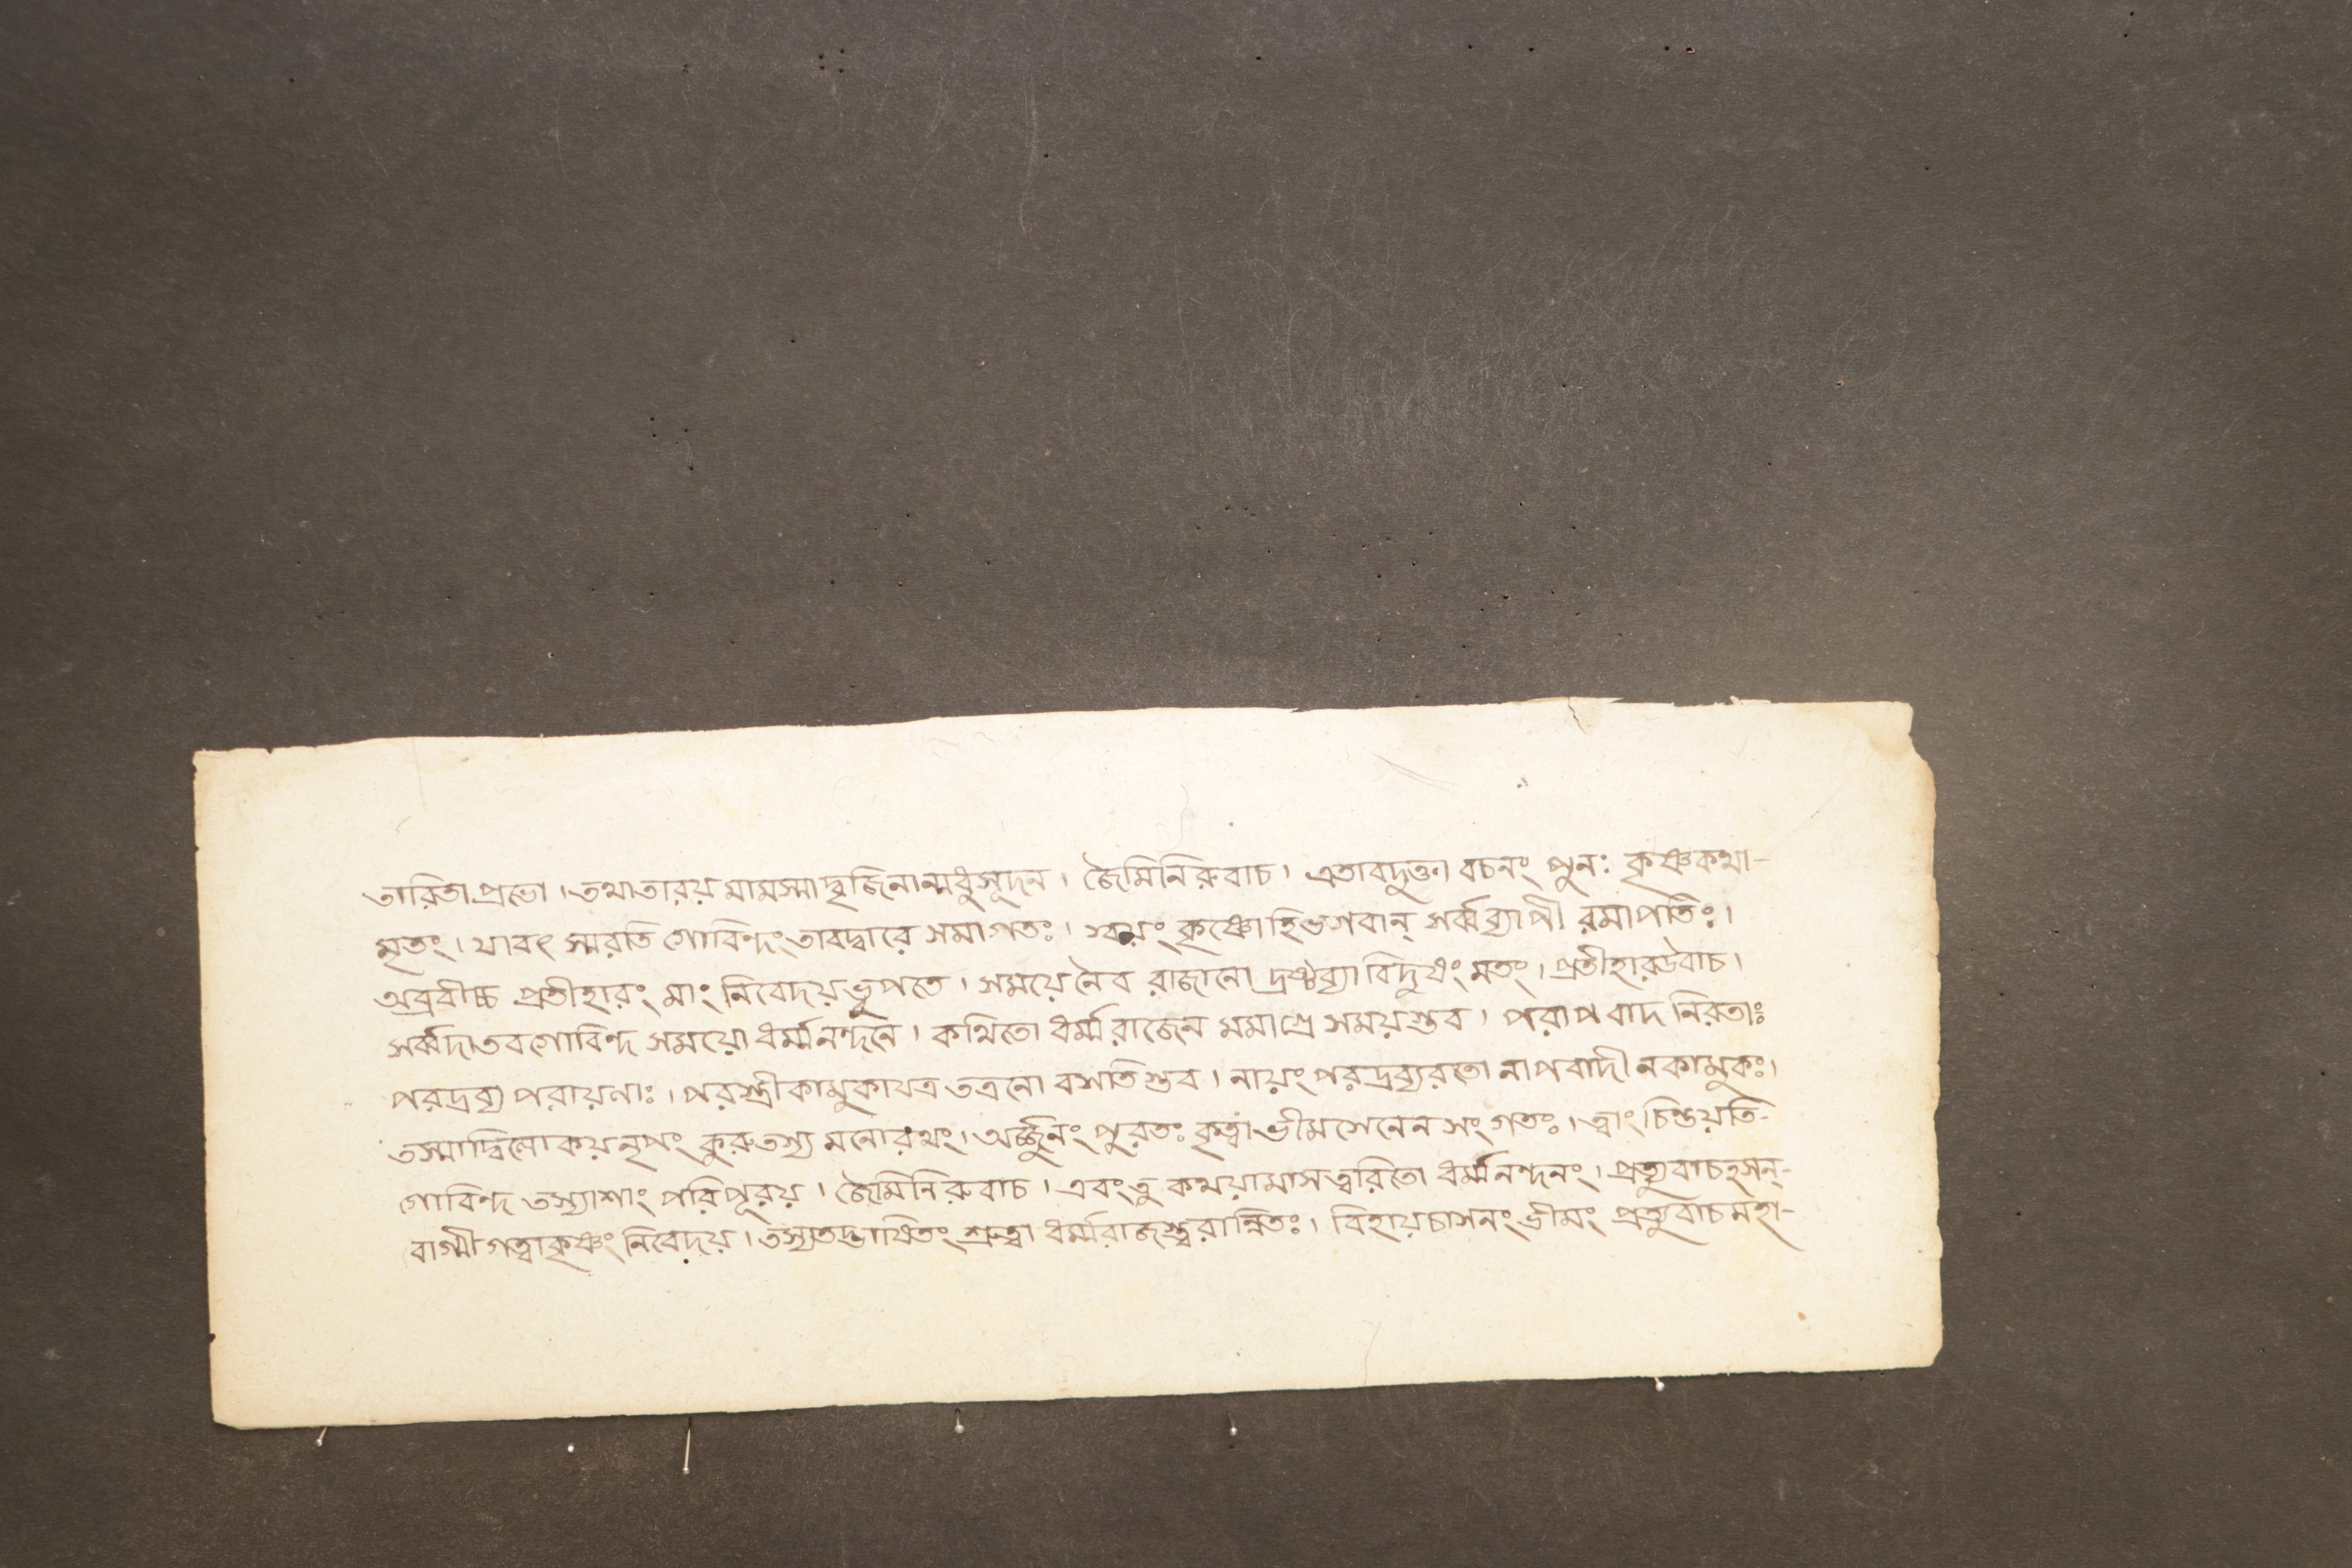 তারিতা প্রভো । তথা তারয় মামস্মাদ্বৃজিনান্মধুসূদন । জৈমিনিরুবাচ । এতাবদুক্ত্বা বচনং পুনঃ কৃষ্ণকথা-
মৃতং । যাবৎ স্মরতি গোবিন্দং তাবদ্দ্বারে সমাগতঃ । স্বয়ং কৃষ্ণো হি ভগবান্ সর্ব্বব্যাপী রমাপতিঃ ।
অব্রবীচ্চ প্রতীহারং মাং নিবেদয় ভূপতে । সময়ে নৈব রাজানো দ্রষ্টব্যা বিদুষাং মতং । প্রতীহার উবাচ ।
সর্ব্বদা তব গোবিন্দ সময়ো ধর্ম্মনন্দনে । কথিতো ধর্ম্মরাজেন মমাগ্রে সময়স্তব । পরাপবাদ নিরতাঃ
পরদ্রব্য পরায়ণাঃ । পরস্ত্রীকামুকা যত্র তত্র নো বসতিস্তব । নায়ং পরদ্রব্যরতো নাপবাদী ন কামুকঃ ।
তস্মাদ্বিলোকয় নৃপং কুরু তস্য মনোরথং । অর্জ্জুনং পুরতঃ কৃত্বা ভীমসেনেন সংগতঃ । ত্বাং চিন্তয়তি-
গোবিন্দ তস্যাশাং পরিপূরয় । জৈমিনিরুবাচ । এবং তু কথয়ামাস ত্বরিতো ধর্ম্মনন্দনং । প্রত্যুবাচ হসন্-
বাগ্মী গত্বা কৃষ্ণং নিবেদয় । তস্য তদ্ভাষিতং শ্রুত্বা ধর্ম্মরাজস্ত্বরান্বিতঃ । বিহায় চাসনং ভীমং প্রত্যুবাচ মহা-